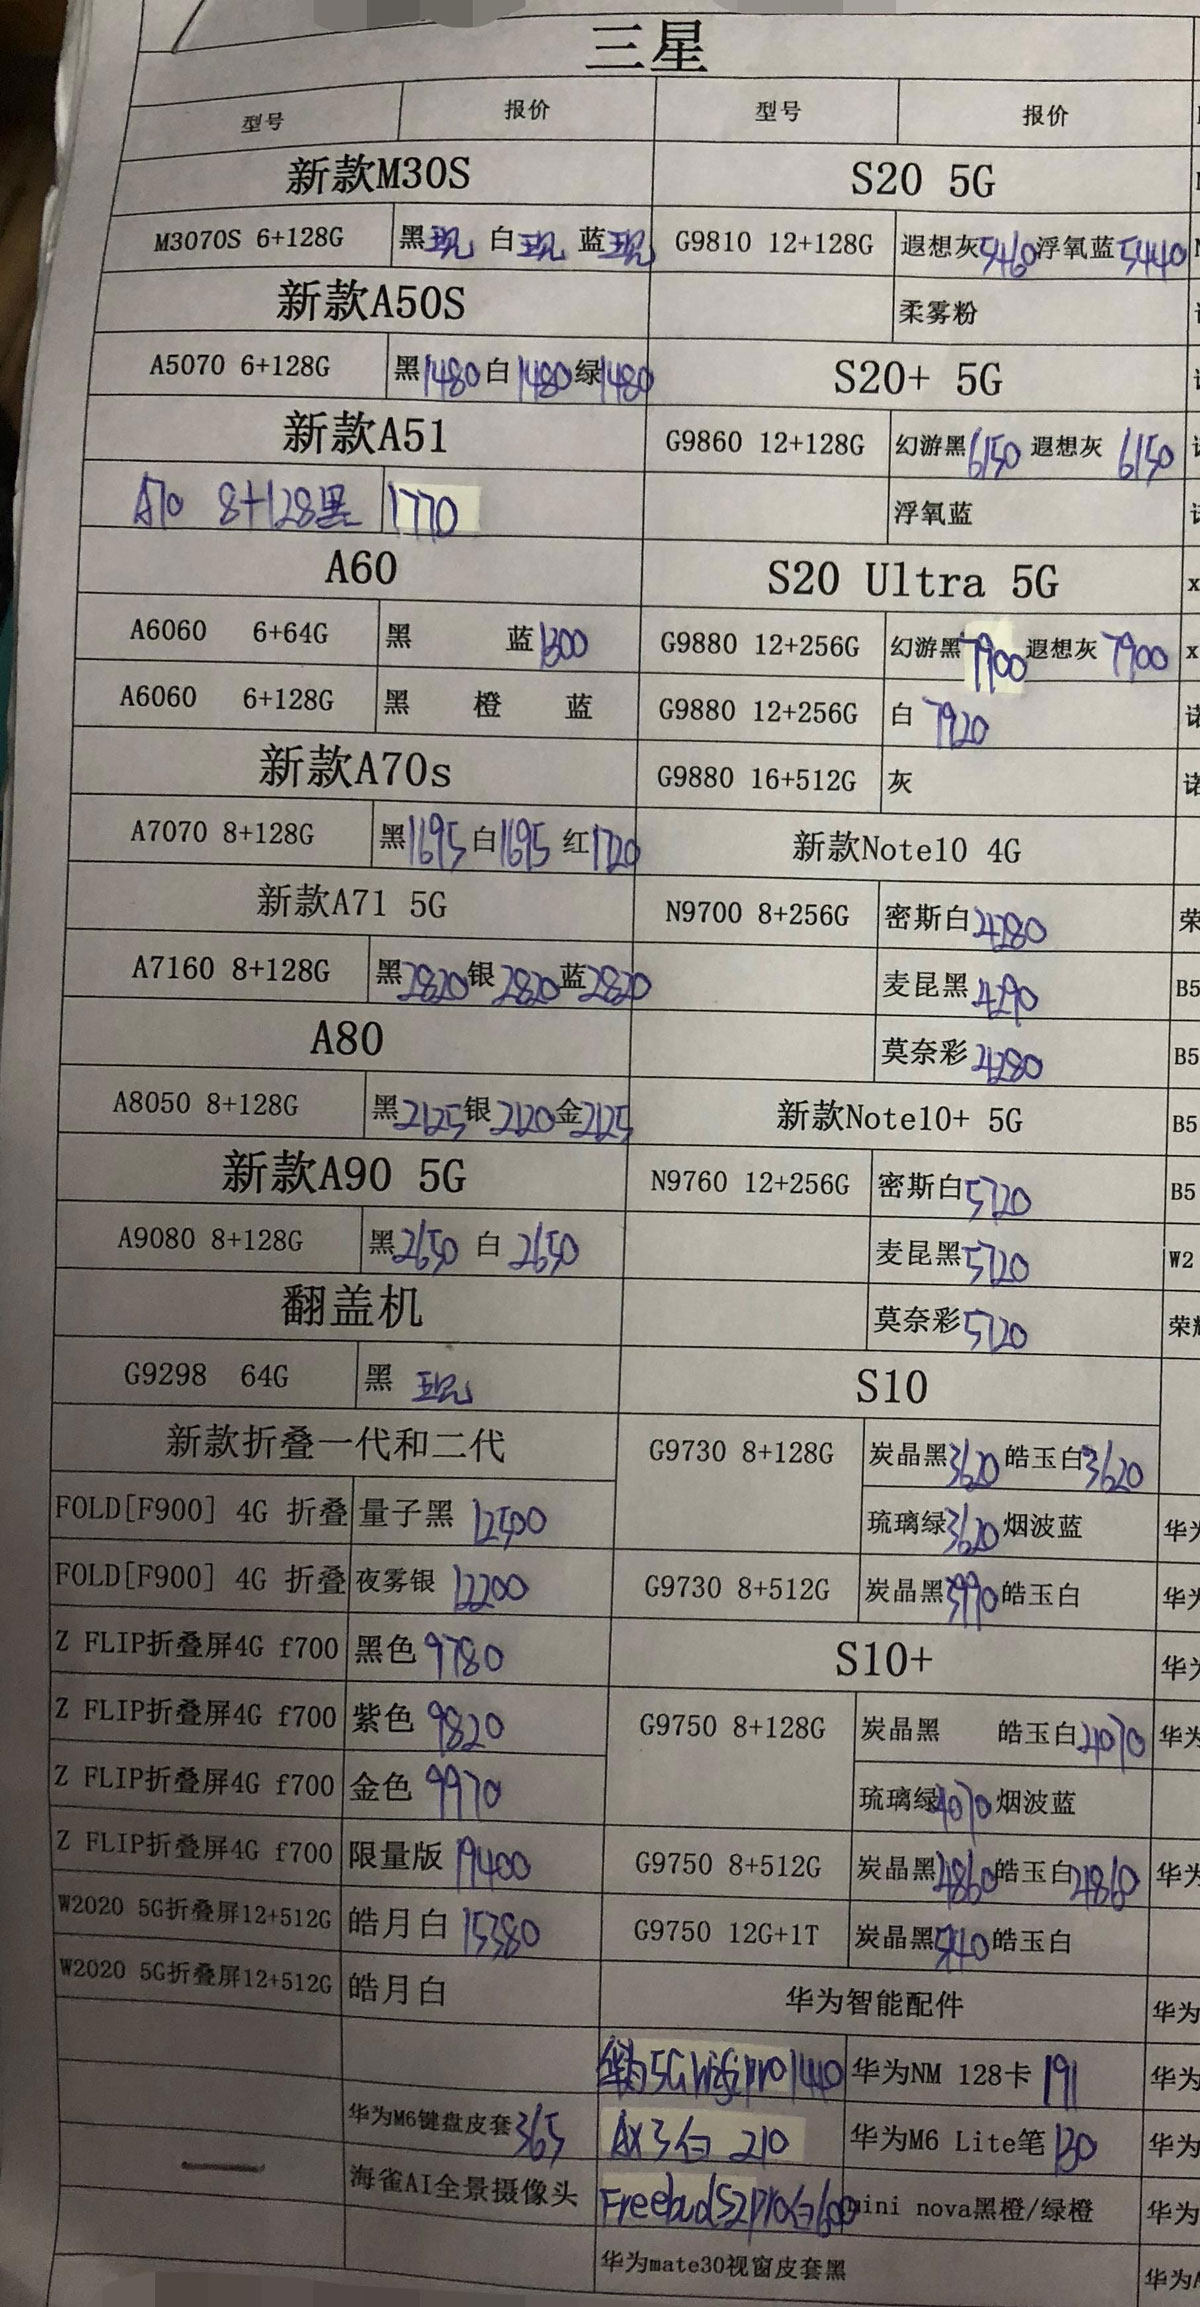 三星
型号 报价 型号 报价
新款M30S S20 5G
M3070S 6+128G 黑现 白现 蓝现 G9810 12+128G 遐想灰5460 浮氧蓝5440
新款A50S 柔雾粉
A5070 6+128G 黑1480 白1480 绿1480 S20+ 5G
新款A51 G9860 12+128G 幻游黑6150 遐想灰 6150
A70 8+128黑 1770 浮氧蓝
A60 S20 Ultra 5G
A6060 6+64G 黑 蓝1300 G9880 12+256G 幻游黑7900 遐想灰 7900
A6060 6+128G 黑 橙 蓝 G9880 12+256G 白 7920
新款A70s G9880 16+512G 灰
A7070 8+128G 黑1695 白1695 红1720 新款Note10 4G
新款A71 5G N9700 8+256G 密斯白4280
A7160 8+128G 黑2820 银2820 蓝2820 麦昆黑4290
A80 莫奈彩4280
A8050 8+128G 黑2125 银2120 金2125 新款Note10+ 5G
新款A90 5G N9760 12+256G 密斯白5720
A9080 8+128G 黑2650 白 2650 麦昆黑5720
翻盖机 莫奈彩5720
G9298 64G 黑 现 S10
新款折叠一代和二代 G9730 8+128G 炭晶黑3620 皓玉白3620
FOLD[F900] 4G 折叠 量子黑 12400 琉璃绿3620 烟波蓝
FOLD[F900] 4G 折叠 夜雾银 12200 G9730 8+512G 炭晶黑3990 皓玉白
Z FLIP折叠屏4G f700 黑色 9780 S10+
Z FLIP折叠屏4G f700 紫色 9820 G9750 8+128G 炭晶黑 皓玉白4070
Z FLIP折叠屏4G f700 金色 9970 琉璃绿4070 烟波蓝
Z FLIP折叠屏4G f700 限量版 19400 G9750 8+512G 炭晶黑4860 皓玉白4860
W2020 5G折叠屏12+512G 皓月白 15380 G9750 12G+1T 炭晶黑5440 皓玉白
W2020 5G折叠屏12+512G 皓月白 华为智能配件
华为5G Wifi pro 1440 华为NM 128卡 191
华为M6键盘皮套365 AX3白 210 华为M6 Lite笔 130
海雀AI全景摄像头 Freebuds2pro白600 mini nova黑橙/绿橙
华为mate30视窗皮套黑